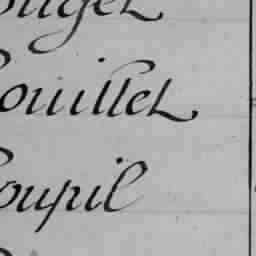 ouget
ouillet
oupil